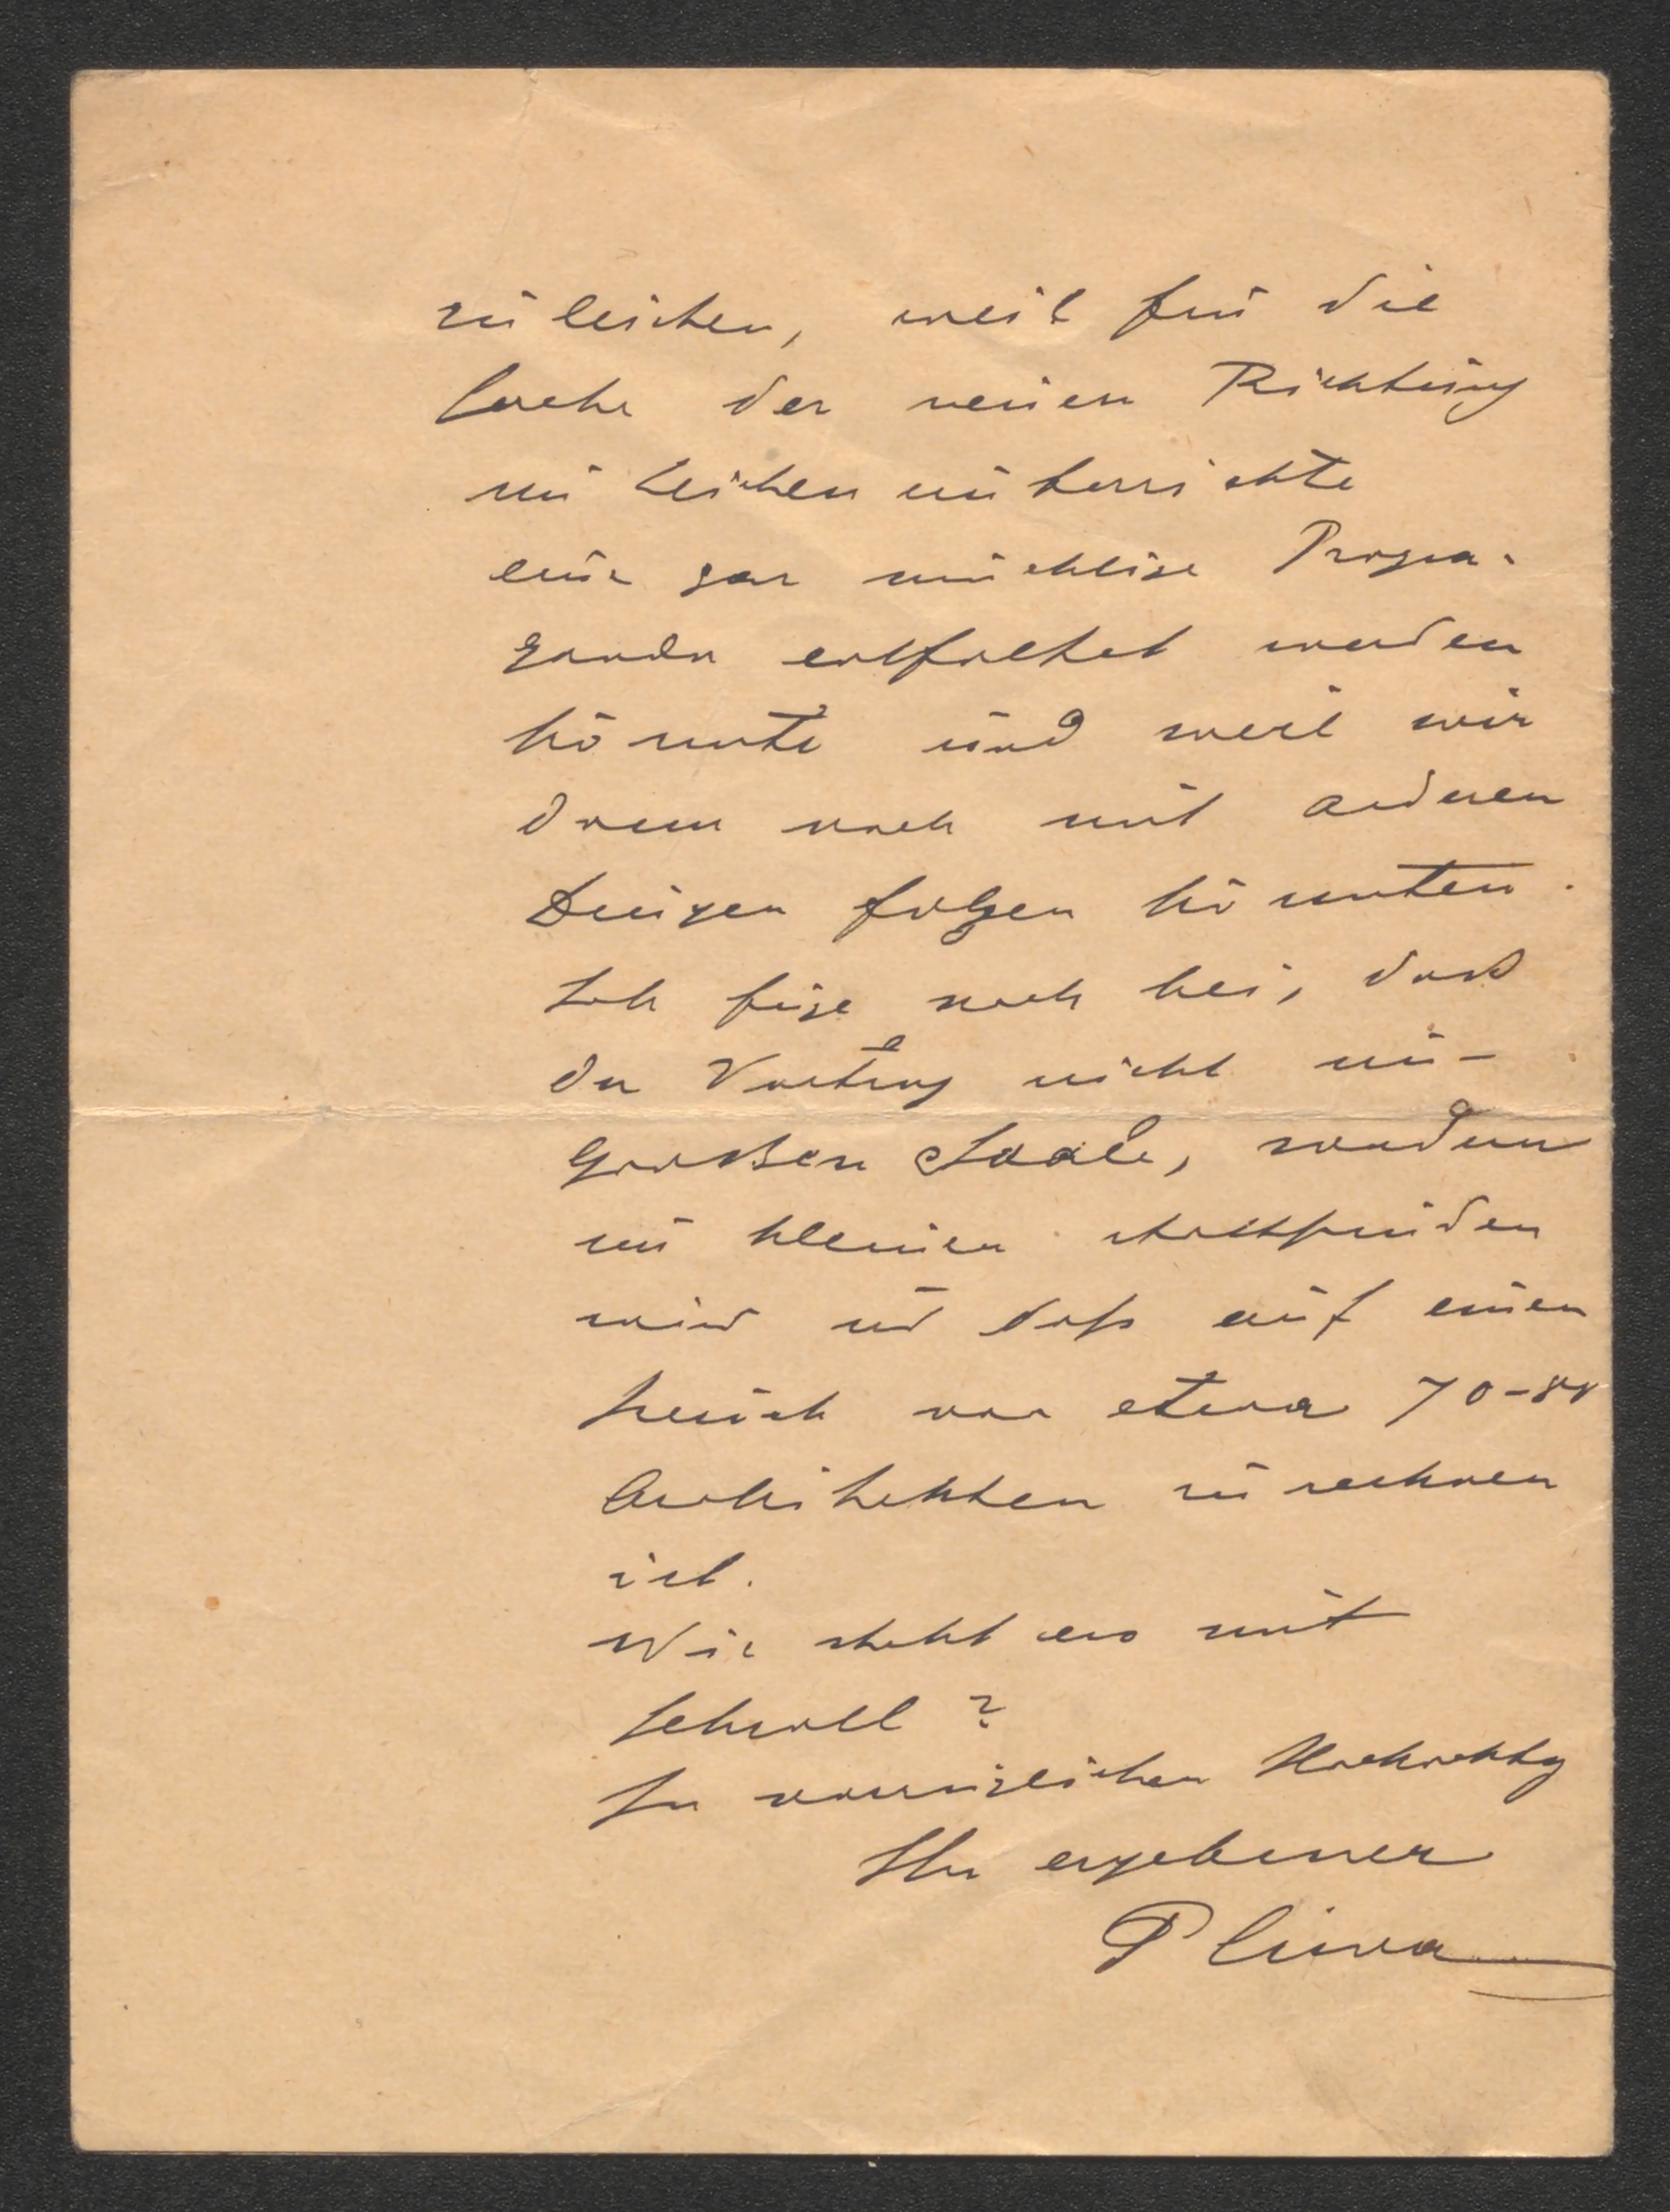 zu leichen, weil für die
Sache der neuen Richtung
im Zeichenunterrichte
eine gar wichtige Propa-
ganda entfaltet werden
könnte und weil wir
dann noch mit anderen
Dingen folgen könnten.
Ich füge noch bei, daß
der Vortrag nicht im
großen Saale, sondern
im kleinen stattfinden
wird und dass auf einen
Besuch von etwa 70-80
Architekten zu rechnen
ist.
Wie steht es mit
Schroll?
In vorzüglicher Hochachtg
Ihr ergebener
Pliwa